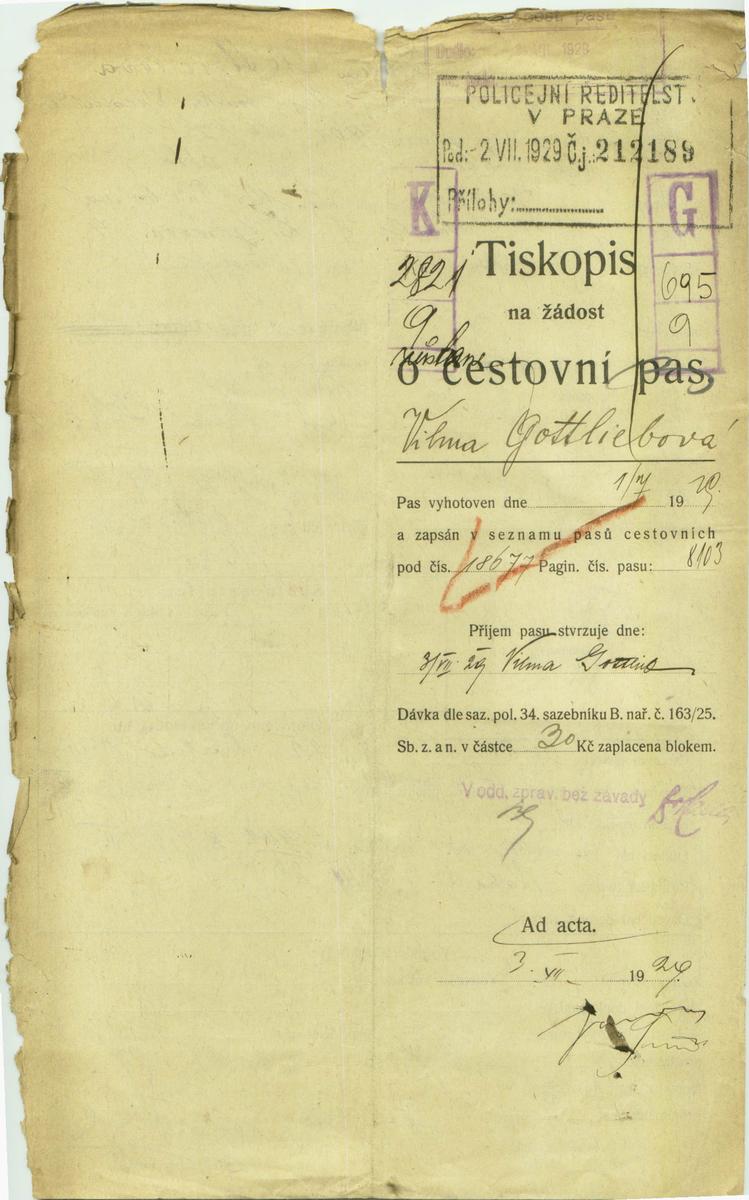 POLICEJNÍ ŘEDITELST.
V PRAZE
Pod: - 2. VII. 1929 Č.j.: 212189
Přílohy:
K
G
2821
9
695
9
Tiskopis
na žádost
o cestovní pas.
Vilma Gottliebová
Pas vyhotoven dne 1/7 19 29.
a zapsán v seznamu pasů cestovních
pod čís. 18677 Pagin. čís. pasu: 8103
Příjem pasu stvrzuje dne:
3/VII. 29 Vilma Gottlieb
Dávka dle saz. pol. 34. sazebníku B. nař. č. 163/25.
Sb. z. a n. v částce 30 Kč zaplacena blokem.
V odd. zprav. bez závady
Ad acta.
3. VII. 19 29.